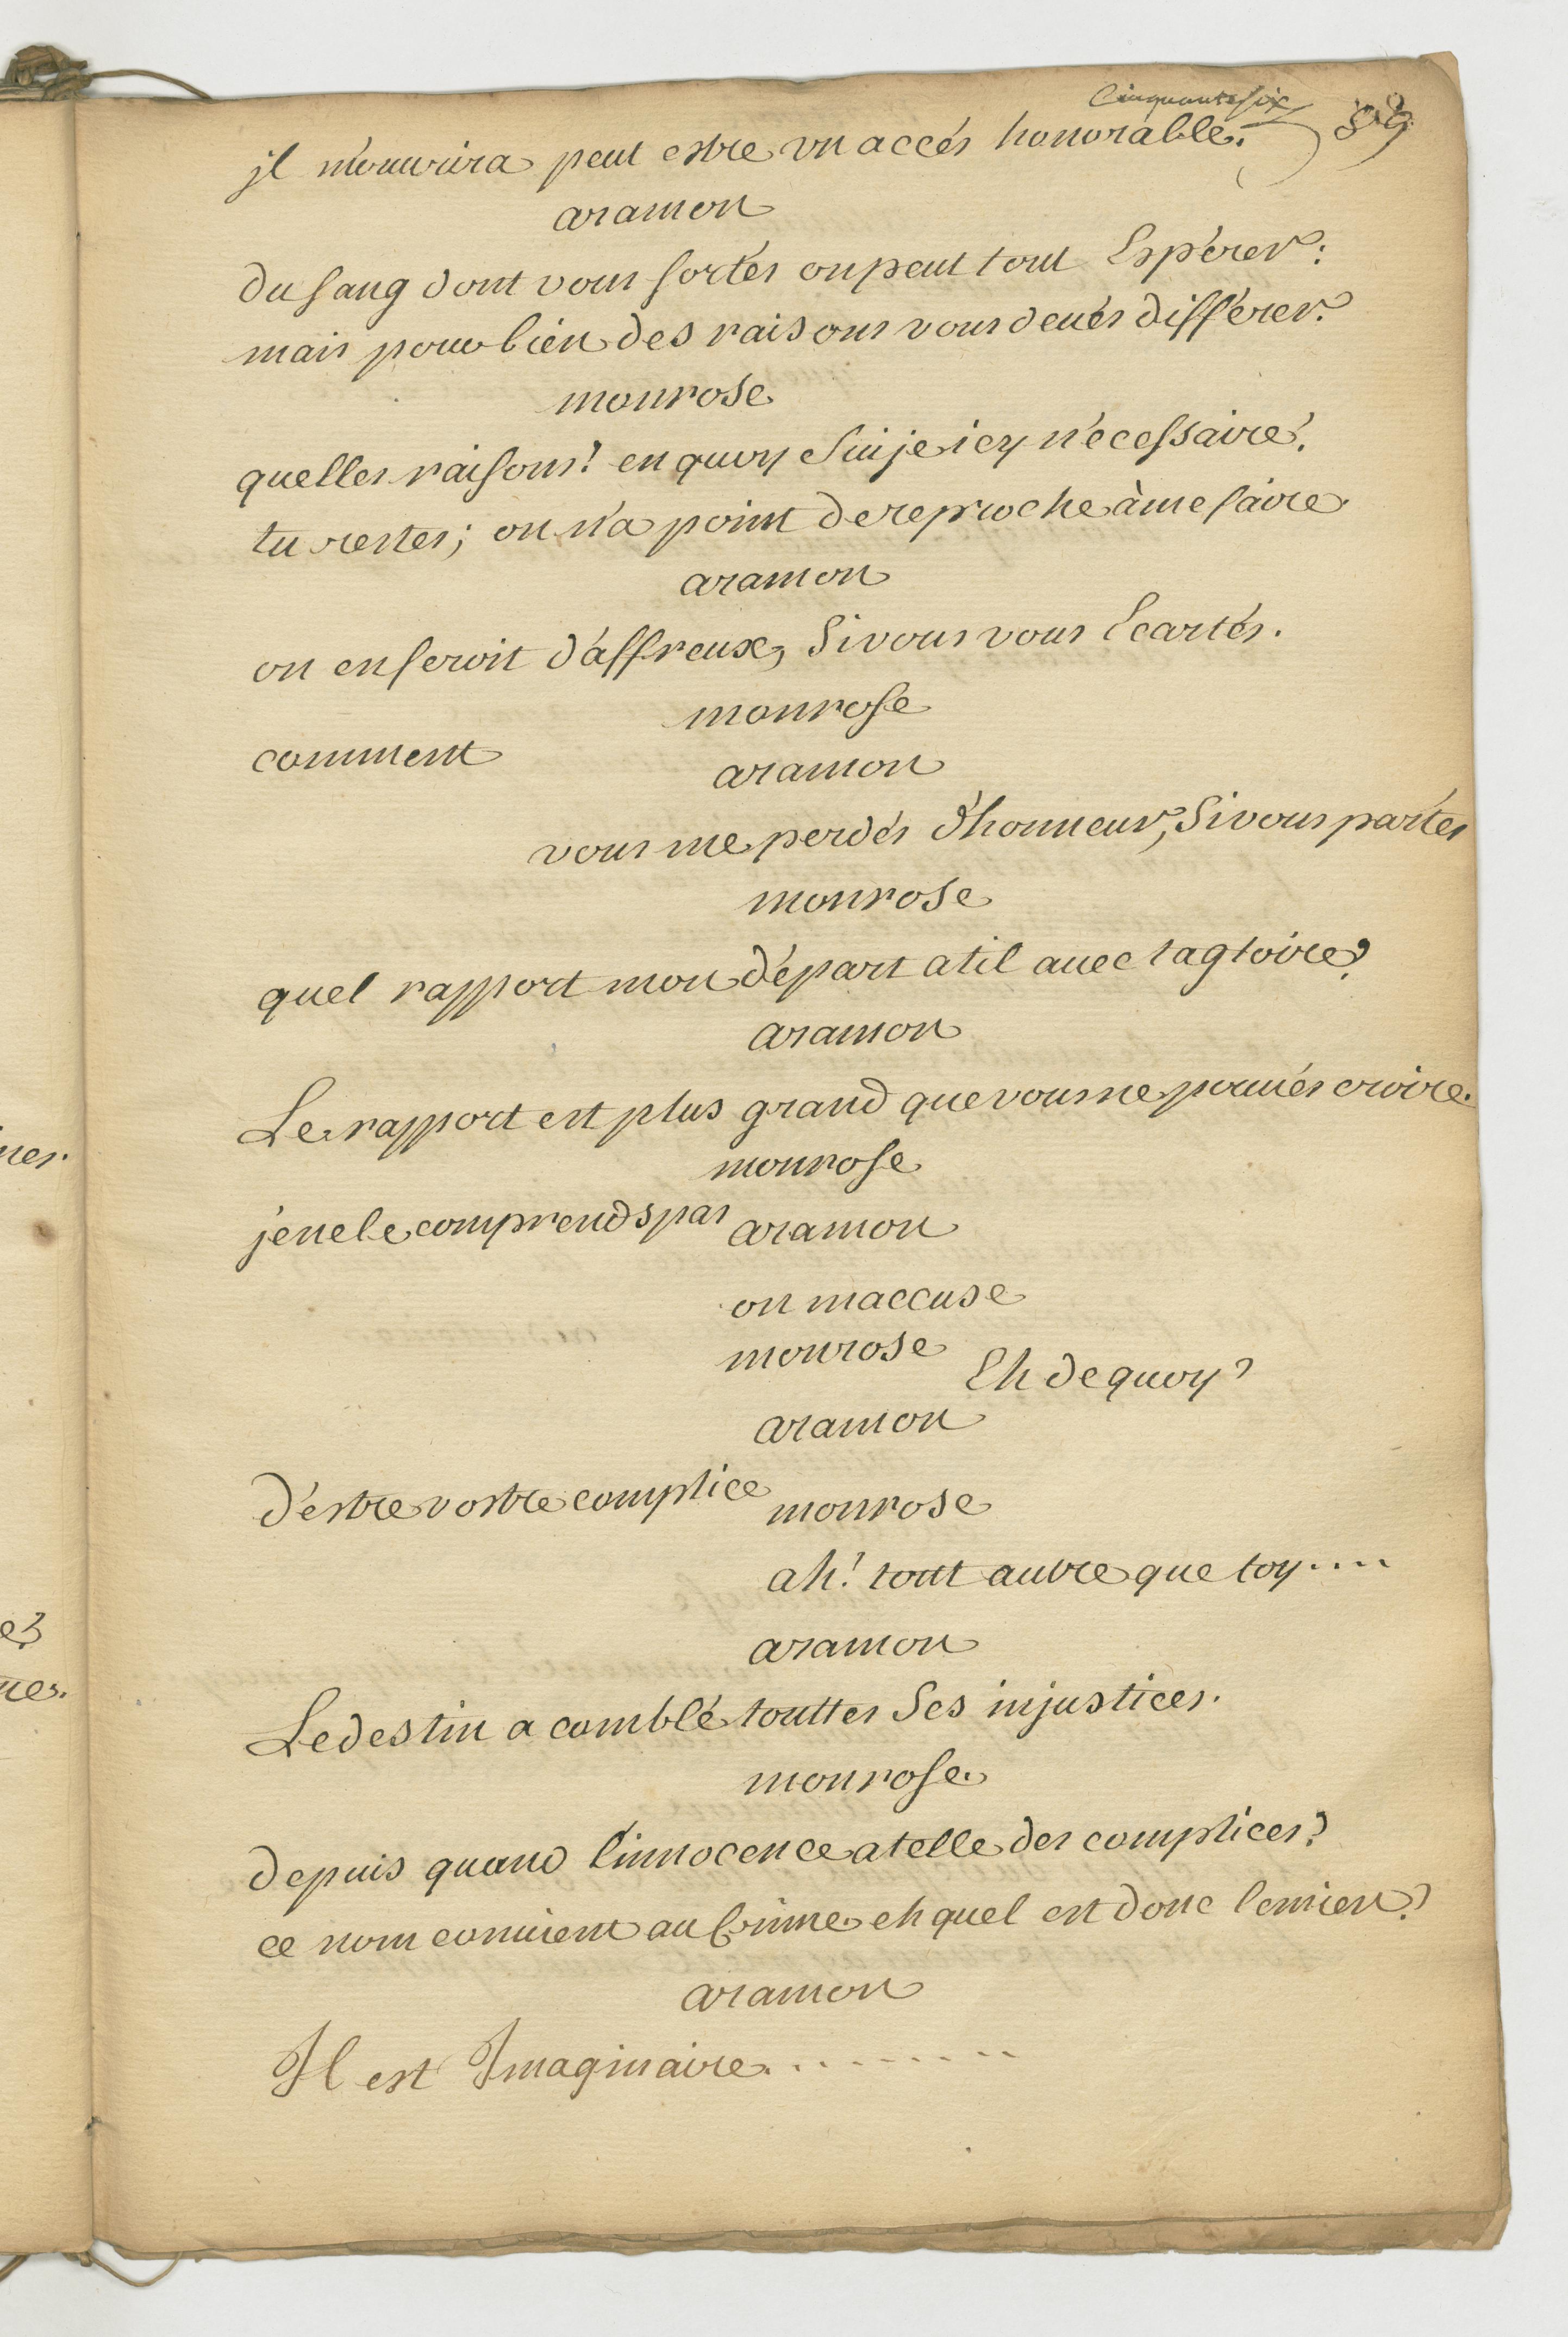 Cinquante six
89
jl m'ouurira peut estre vn accés honorable.
aramon
du sang dont vous sortés on peut tout Esperer:
mais pour bien des raisons vous deués différer.
monrose
quelles raisons! en quoy suije icy nécessaire!
tu restes; on n'a point de reproche à me faire
aramon
on en feroit d'affreux, Si vous vous Ecartés.
monrose
comment
aramon
vous me perdés d'honneur, Si vous partés
monrose
quel rapport mon départ atil auec ta gloire?
aramon
Le rapport est plus grand que vous ne pouués croire.
monrose
je ne le comprends pas
aramon
on maccuse
monrose
Eh de quoy?
aramon
d'estre vostre complice
monrose
ah! tout autre que toy....
aramon
Le destin a comblé touttes Ses injustices.
monrose.
depuis quand l'innocence atelle des complices?
ce nom conuient au Crime eh quel est donc le mien?
aramon
Il est Imaginaire.........
ner.
e?
nes.